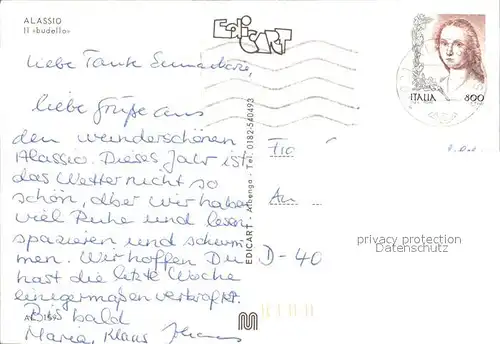 ALASSIO
Il «budello»
EDICART
ITALIA 800
Liebe Tante
liebe Grüße aus
den wunderschönen
Alassio. Dieses Jahr ist
das Wetter nicht so
schön, aber wir haben
viel Ruhe und lesen,
spazieren und schwim
men. Wir hoffen Du
hast die letzte Woche
einigermaßen verkraftet.
Bis bald
Maria, Klaus
EDICART - Albenga - Tel. 0182-540493
D-40
privacy protection
Datenschutz